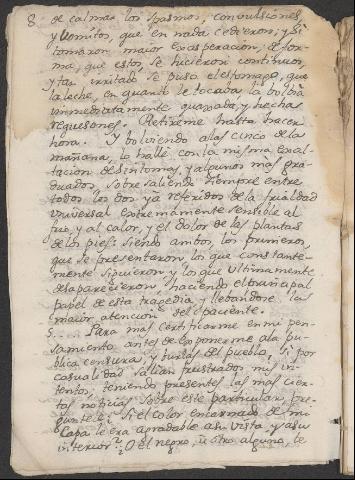 8. de calmar los spasmos, convulsiones
y vomitos, que en nada cedieron; y si
tomaron maior exasperacion; de for-
ma, que estos se hicieron continuos,
y tan irritado se puso el estomago, que
la leche, en quanto le tocaba la bolbia
inmediatamente quaxada, y hechas
requesones. Retireme hasta hacer
hora. Y bolviendo a las cinco de la
mañana, lo hallé con la misma exal-
tacion de sintomas, y algunos mas gra-
duados, sobresaliendo siempre entre
todos los dos ya referidos de la frialdad
universal extremamente sensible al
frio, y al calor, y el dolor de las plantas
de los pies: siendo ambos, los primeros,
que se presentaron, los que constante-
mente siguieron y los que ultimamente
desaparecieron, haciendo el principal
papel de esta tragedia y llebandose las
maior atencion del paciente.
5.... Para mas certificarme en mi pen-
samiento antes de exponerme a la pu-
blica censura, y burlas del pueblo, si por
casualidad salian frustrados mis in-
tentos, teniendo presentes las mas cier-
tas noticias sobre este particular, pre-
guntele: Si el color encarnado de mi
Capa le era agradable a su vista, y a su
interior? O el negro, u otro alguno, le